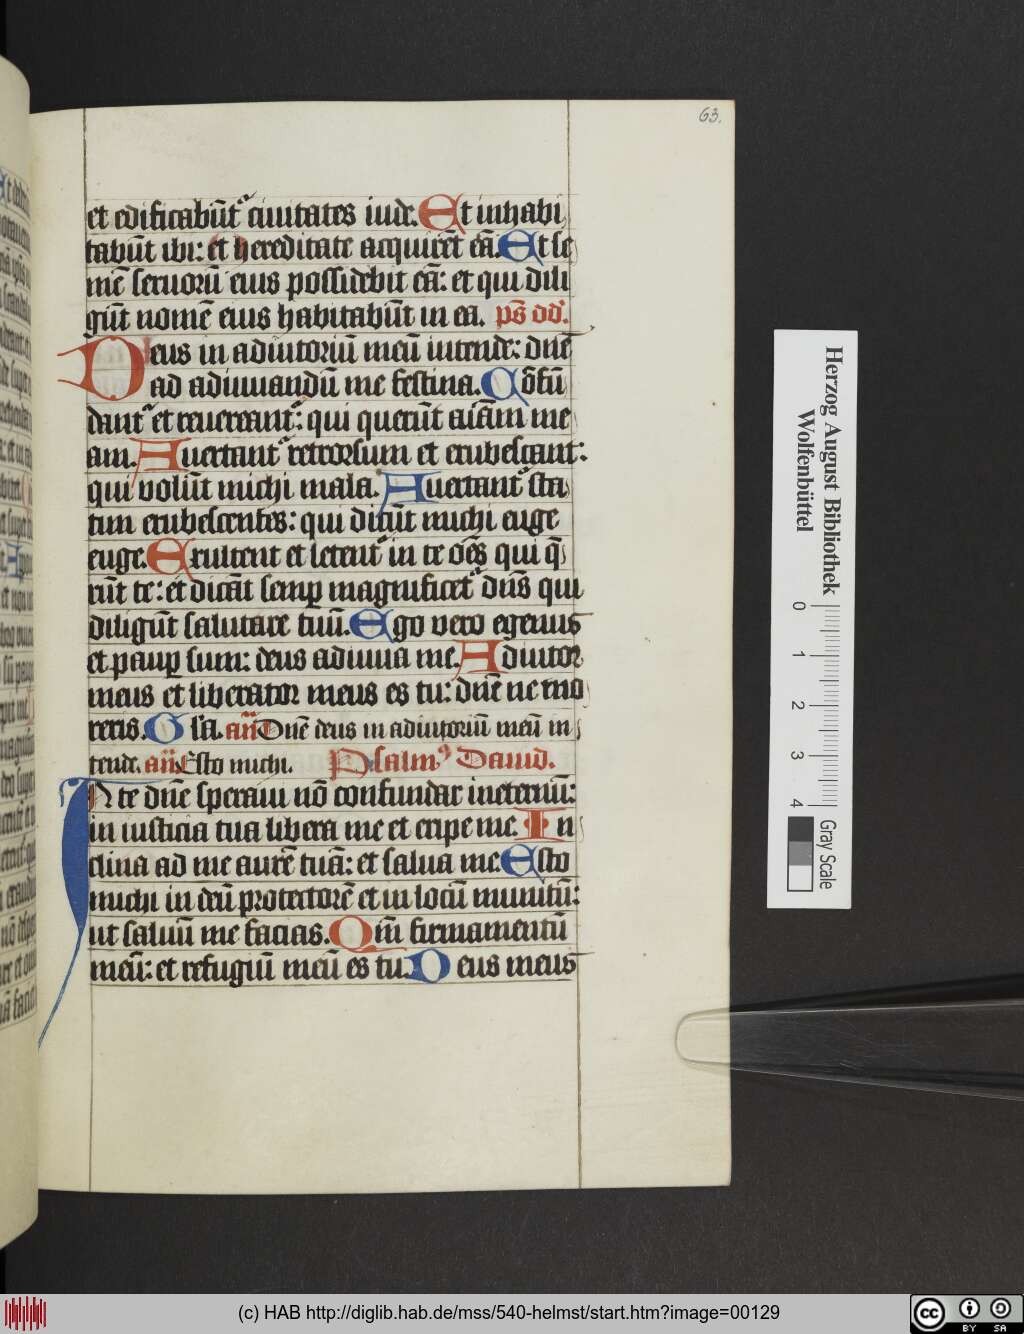 63.
et edificabūt᷑ ciuitates iude. Et inhabi
tabūt ibi: et hereditate acquirēt eā. Et se
mē seruorū eius possidebit eā: et qui dili
gūt nomē eius habitabūt in ea. ps̄ dd̄.
Deus in adiutoriū meū intende: dn̄e
ad adiuuandū me festina. Cōfū
dant᷑ et reuereant᷑: qui querūt aīam me
am. Auertant᷑ retrorsum et erubescant:
qui volūt michi mala. Auertant᷑ sta
tim erubescentes: qui dicūt michi euge
euge. Exultent et letent᷑ in te oēs qui q̄
rūt te: et dicāt semꝑ magnificet᷑ dn̄s qui
diligūt salutare tuū. Ego vero egenus
et pauꝑ sum: deus adiuua me. Adiutor
meus et liberator meus es tu: dn̄e ne mo
reris. Gl̄a. an̄ Dn̄e deus in adiutoriū meū in
tende. an̄ Esto michi. Psalmꝰ Dauid.
IN te dn̄e speraui nō confundar ineternū:
in iusticia tua libera me et eripe me. In
clina ad me aurē tuā: et salua me. Esto
michi in deū protectorē et in locū munitū:
ut saluū me facias. Qm̄ firmamentū
meū: et refugiū meū es tu. Deus meus
Herzog August Bibliothek
Wolfenbüttel
0
1
2
3
4
Gray Scale
(c) HAB http://diglib.hab.de/mss/540-helmst/start.htm?image=00129
cc BY SA